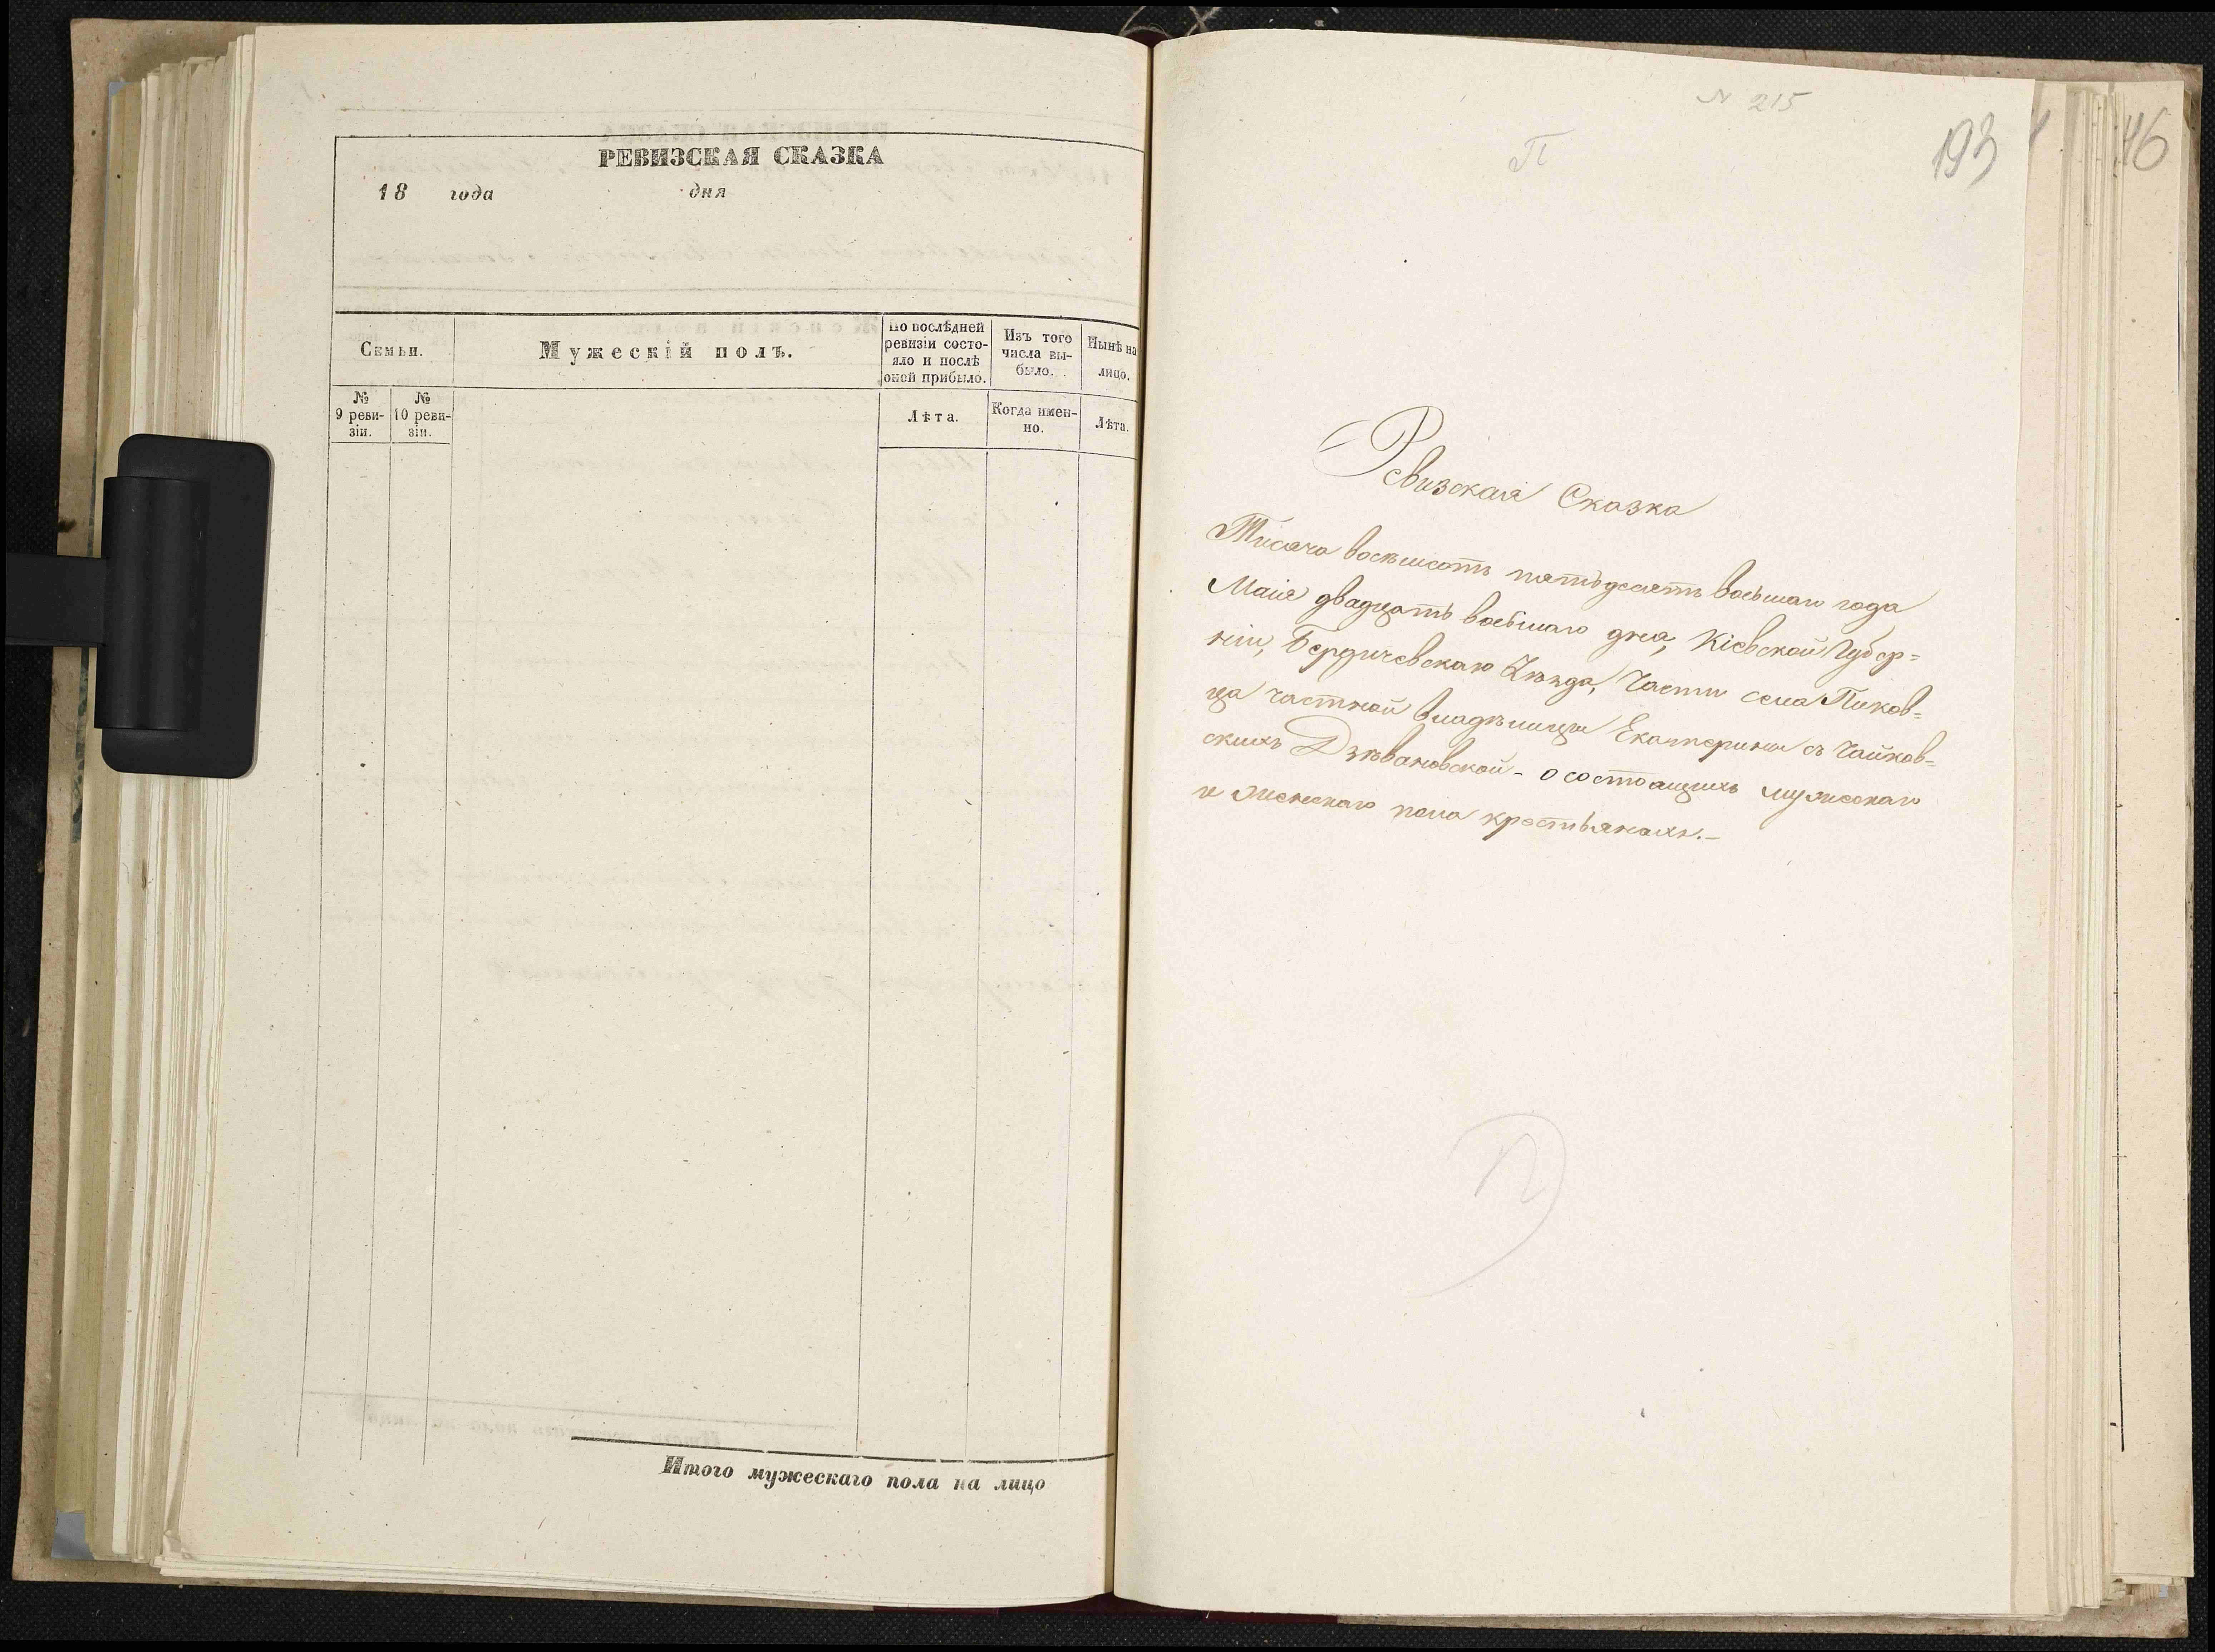 РЕВИЗСКАЯ СКАЗКА
18 года дня
Семьи.
Мужескій полъ.
По послѣдней
ревизіи состо-
яло и послѣ
оной прибыло.
Изъ того
числа вы-
было.
Нынѣ на
лицо.
№
9 реви-
зіи.
№
10 реви-
зіи.
Лѣта.
Когда имен-
но.
Лѣта.
Итого мужескаго пола на лицо
N 215
П
193
46
Ревизская Сказка
Тисяча восѣмсотъ пятьдесятъ восьмаго года
Маія двадцать восьмаго дня, Кіевской Губер=
ніи, Бердичевскаго Уѣзда, Части села Пиков=
ца частной владѣлицы Екатерины съ Чайков=
скихъ Дзѣвановской - о состоящихъ мужескаго
и женскаго пола крестьянахъ.-
П